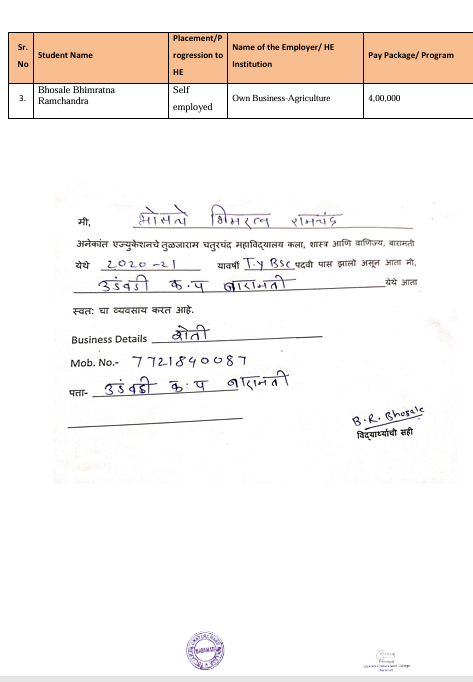 Sr. No Student Name Placement/Progression to HE Name of the Employer/ HE Institution Pay Package/ Program
3. Bhosale Bhimratna Ramchandra Self employed Own Business-Agriculture 4,00,000
मी, भोसले भिमरत्न रामचंद्र
अनेकांत एज्युकेशनचे तुळजाराम चतुरचंद महाविद्यालय कला, शास्त्र आणि वाणिज्य, बारामती
येथे 2020-21 यावर्षी T.y BSc पदवी पास झालो असून आता मी,
उंडवडी क.प बारामती येथे आता
स्वतः चा व्यवसाय करत आहे.
Business Details शेती
Mob. No.- 7721840087
पता- उंडवडी क.प बारामती
B.R.Bhosale
विद्यार्थ्याची सही
BARAMATI
Principal